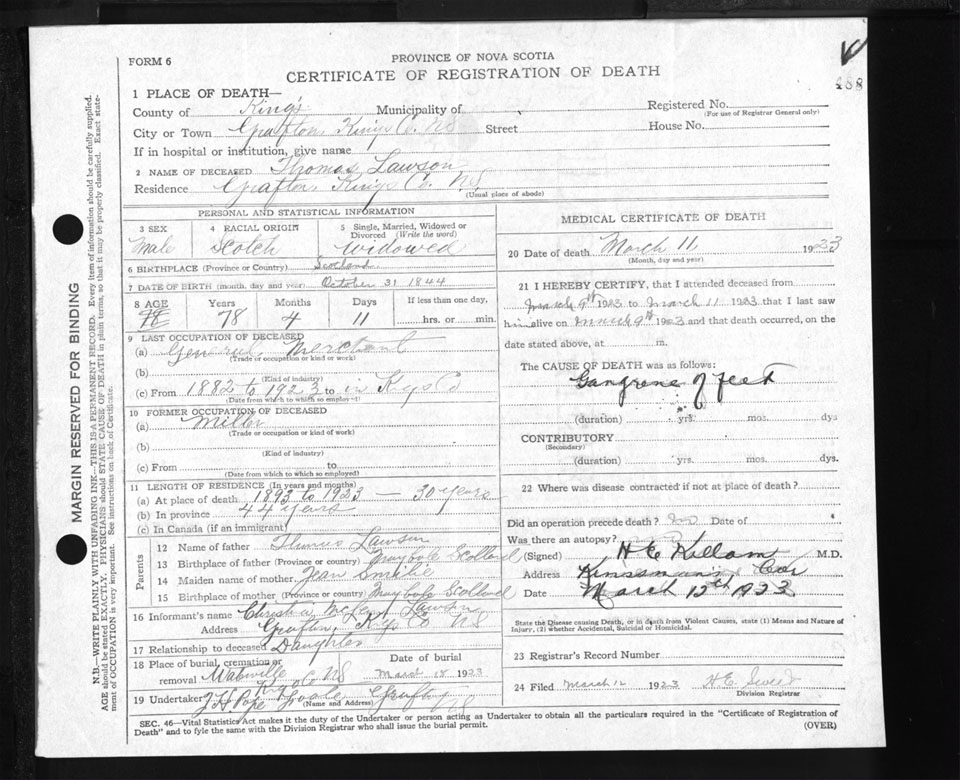 FORM 6
PROVINCE OF NOVA SCOTIA
CERTIFICATE OF REGISTRATION OF DEATH
208
1 PLACE OF DEATH—
County of King's Municipality of Registered No.
(For use of Registrar General only)
City or Town Grafton, Kings Co. NS Street House No.
If in hospital or institution, give name
2 NAME OF DECEASED Thomas Lawson
Residence Grafton, Kings Co. NS
(Usual place of abode)
PERSONAL AND STATISTICAL INFORMATION
3 SEX 4 RACIAL ORIGIN 5 Single, Married, Widowed or Divorced (Write the word)
Male Scotch Widowed
6 BIRTHPLACE (Province or Country) Scotland
7 DATE OF BIRTH (month, day and year) October 31 1844
8 AGE Years Months Days If less than one day,
78 78 4 11 hrs. or min.
9 LAST OCCUPATION OF DECEASED
(a) General Merchant
(Trade or occupation or kind of work)
(b)
(Kind of industry)
(c) From 1882 to 1923 in Kgs Co
(Date from which to which so employed)
10 FORMER OCCUPATION OF DECEASED
(a) Miller
(Trade or occupation or kind of work)
(b)
(Kind of industry)
(c) From to
(Date from which to which so employed)
11 LENGTH OF RESIDENCE (In years and months)
(a) At place of death 1893 to 1923 — 30 years
(b) In province 44 years
(c) In Canada (if an immigrant)
Parents
12 Name of father Thomas Lawson
13 Birthplace of father (Province or country) Maybole Scotland
14 Maiden name of mother Jean Smilie
15 Birthplace of mother (Province or country) Maybole Scotland
16 Informant's name Christina Lawson
Address Grafton, Kgs Co NS
17 Relationship to deceased Daughter
18 Place of burial, cremation or removal NS Date of burial March 1923
19 Undertaker J H Pope Grafton NS
(Name and Address)
MEDICAL CERTIFICATE OF DEATH
20 Date of death March 11 1923
(Month, day and year)
21 I HEREBY CERTIFY, that I attended deceased from
March 9th 1923 to March 11 1923 that I last saw
him alive on March 9th 1923 and that death occurred, on the
date stated above, at m.
The CAUSE OF DEATH was as follows:
Gangrene of feet
(duration) yrs. mos. dys
CONTRIBUTORY
(Secondary)
(duration) yrs. mos. dys.
22 Where was disease contracted if not at place of death?
Did an operation precede death? no Date of
Was there an autopsy?
(Signed) H E Killam M.D.
Address Kinsman's Cor
Date March 12th 1923
State the Disease causing Death, or in death from Violent Causes, state (1) Means and Nature of Injury, (2) whether Accidental, Suicidal or Homicidal.
23 Registrar's Record Number
24 Filed March 12 1923
Division Registrar
SEC. 46—Vital Statistics Act makes it the duty of the Undertaker or person acting as Undertaker to obtain all the particulars required in the "Certificate of Registration of
Death" and to fyle the same with the Division Registrar who shall issue the burial permit.
(OVER)
MARGIN RESERVED FOR BINDING
N.B.—WRITE PLAINLY WITH UNFADING INK—THIS IS A PERMANENT RECORD. Every item of information should be carefully supplied.
AGE should be stated EXACTLY. PHYSICIANS should STATE CAUSE OF DEATH in plain terms, so that it may be properly classified. Exact statement of OCCUPATION is very important. See instructions on back of Certificate.